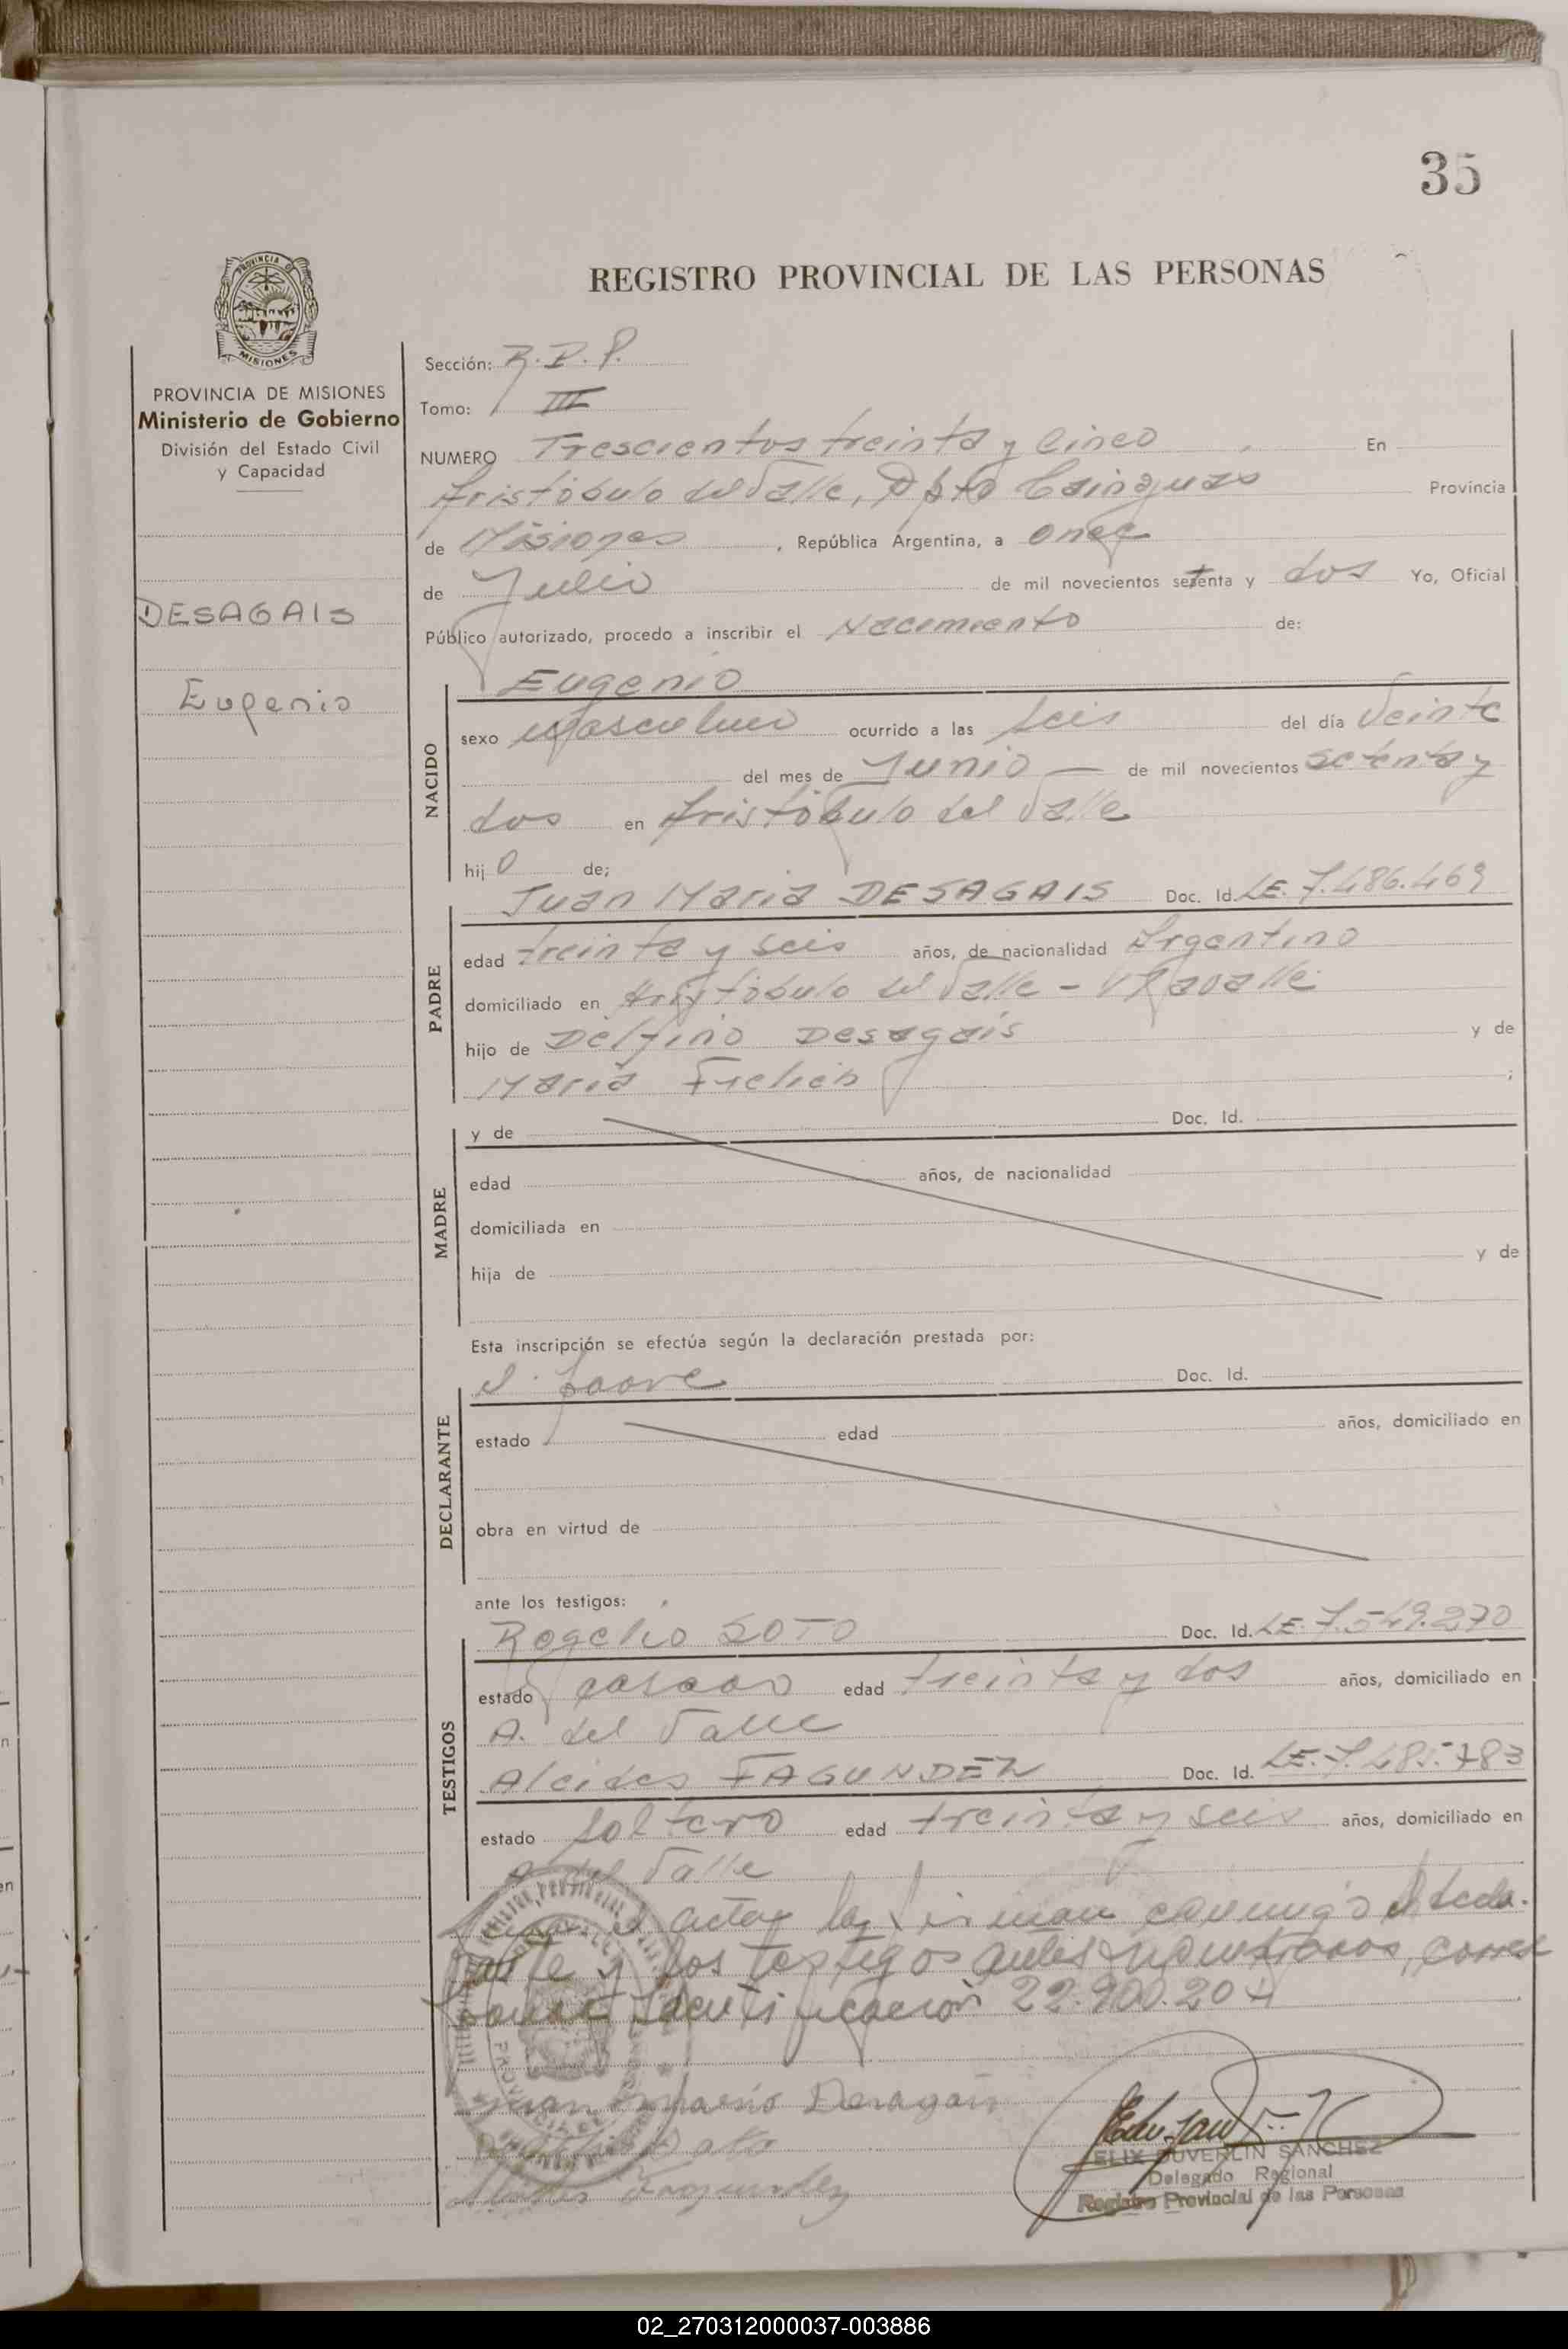 35
REGISTRO PROVINCIAL DE LAS PERSONAS
PROVINCIA DE
MISIONES
PROVINCIA DE MISIONES
Ministerio de Gobierno
División del Estado Civil
y Capacidad
DESAGAIS
Eugenio
Sección: R.P.P.
Tomo: III
NUMERO Trescientos treinta y cinco En
Aristóbulo del Valle, Dpto Cainguas Provincia
de Misiones, República Argentina, a once
de Julio de mil novecientos setenta y dos Yo, Oficial
Público autorizado, procedo a inscribir el Nacimiento de:
Eugenio
NACIDO
sexo Masculino ocurrido a las seis del día Veinte
del mes de Junio — de mil novecientos setenta y
dos en Aristóbulo del Valle
hijo de;
Juan Maria DESAGAIS Doc. Id. LE. 7.486.469
PADRE
edad treinta y seis años, de nacionalidad Argentino
domiciliado en Aristóbulo del Valle -
hijo de Delfino Desagais y de
Maria ;
MADRE
y de Doc. Id.
edad años, de nacionalidad
domiciliada en
hija de y de
Esta inscripción se efectúa según la declaración prestada por:
el padre Doc. Id.
DECLARANTE
estado edad años, domiciliado en
obra en virtud de
ante los testigos:
Rogelio SOTO Doc. Id. LE. 7.549.270
TESTIGOS
estado casado edad treinta y dos años, domiciliado en
A. del Valle
Alcides FAGUNDEZ Doc. Id. LE. 7.485.783
estado soltero edad treinta y seis años, domiciliado en
A. del Valle
el acta, la firman conmigo el decla-
rante y los testigos antes
Identificación 22.900.204
Juan Maria Desagais
Fagundez
FELIX DUVERLIN SANCHEZ
Delegado Regional
Registro Provincial de las Personas
02_270312000037-003886